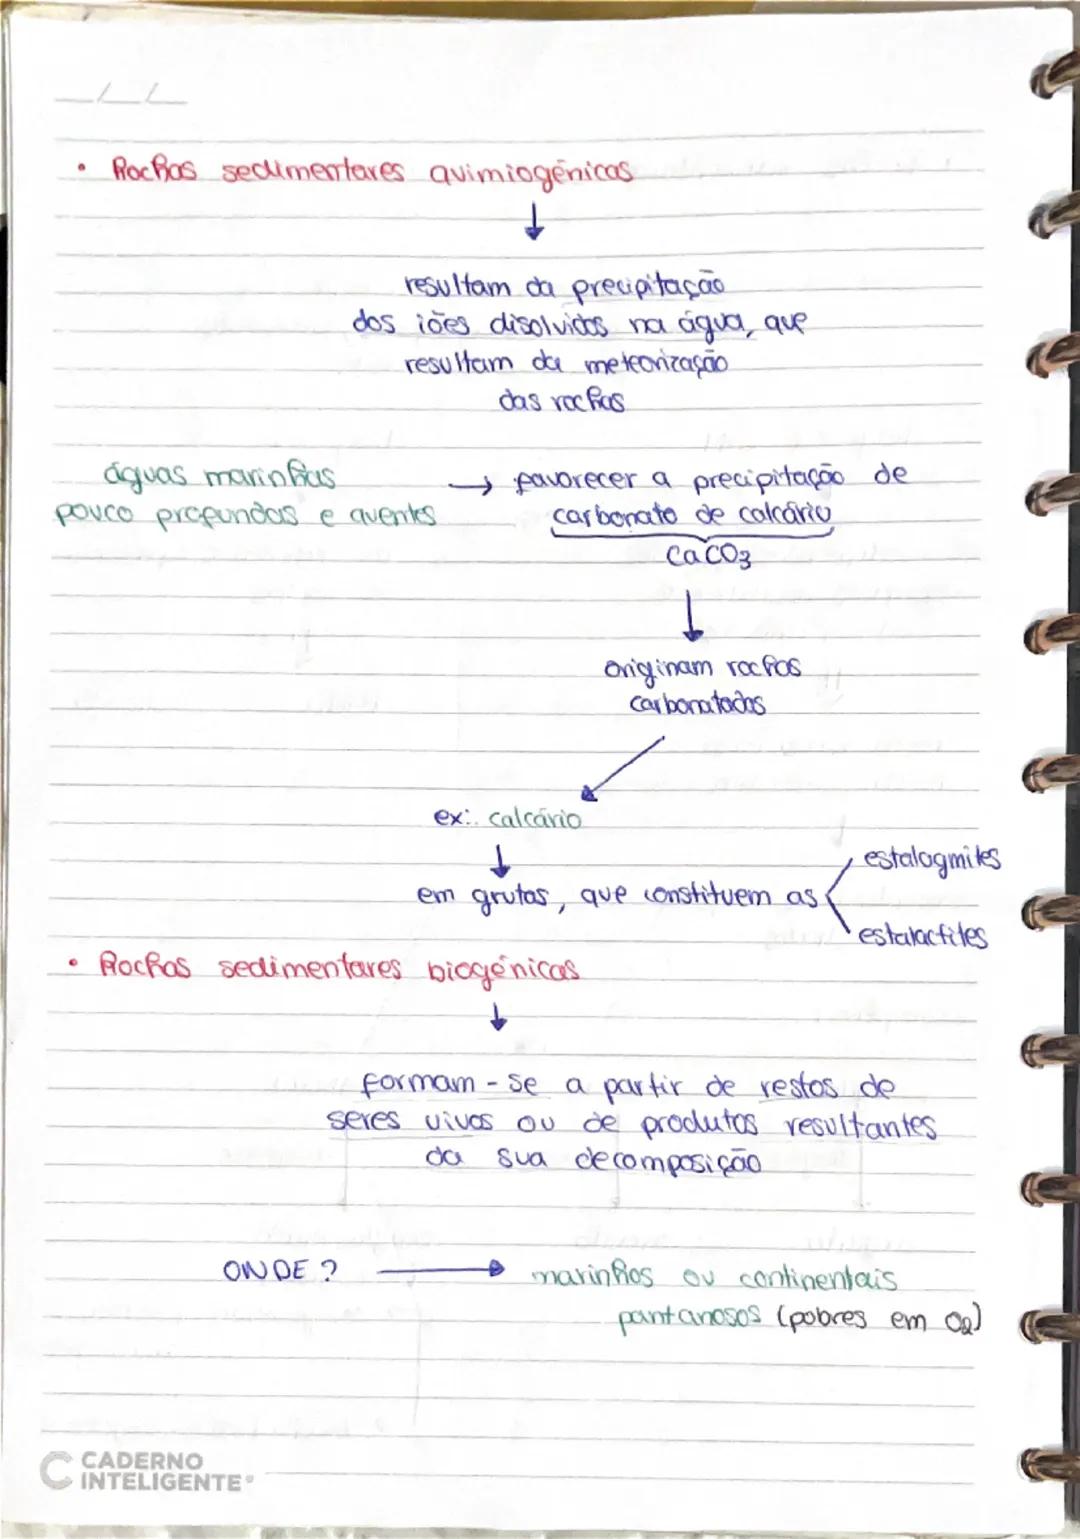 • Rochas sedimentares quimiogénicas
↓
resultam da precipitação
dos iões disolvidos na água, que
resultam da meteorização
das rochas
águas marinhas → favorecer a precipitação de
pouco profundas e quentes carbonato de calcário
CaCO3
↓
originam rochas
carbonatadas
ex:. calcário
↓
estalagmites
em grutas, que constituem as
estalactites
• Rochas sedimentares biogénicas
↓
formam-se a partir de restos de
seres vivos ou de produtos resultantes
da sua decomposição
ONDE? → marinhos ou continentais
pantanosos (pobres em O2)
CADERNO
INTELIGENTE®